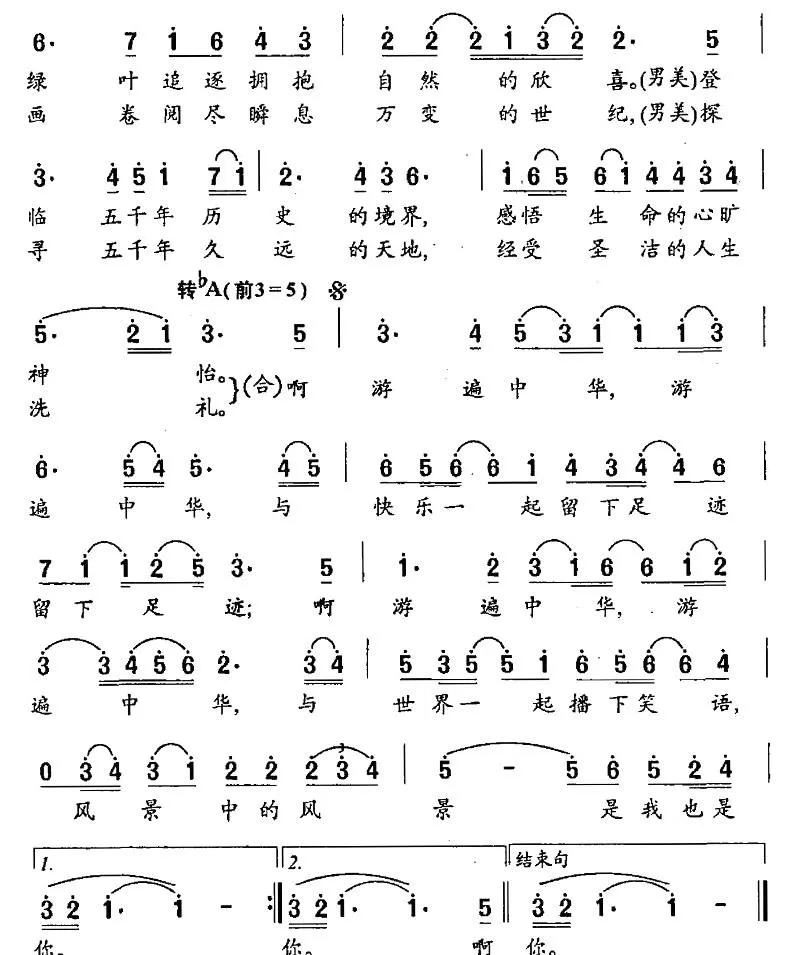 6· 7 1 6 4 3 | 2 2 2 1 3 2 2· 5 |
绿 叶 追 逐 拥 抱 自 然 的 欣 喜。(男美)登
画 卷 阅 尽 瞬 息 万 变 的 世 纪,(男美)探
3· 4 5 1 7 1 | 2· 4 3 6· | 1 6 5 6 1 4 4 3 4 |
临 五 千 年 历 史 的 境 界, 感 悟 生 命 的 心 旷
寻 五 千 年 久 远 的 天 地, 经 受 圣 洁 的 人 生
转♭A(前3=5) 𝄋
5· 2 1 3· 5 | 3· 4 5 3 1 1 1 3 |
神 怡。}(合)啊 游 遍 中 华, 游
洗 礼。
6· 5 4 5· 4 5 | 6 5 6 6 1 4 3 4 4 6 |
遍 中 华, 与 快 乐 一 起 留 下 足 迹
7 1 1 2 5 3· 5 | 1· 2 3 1 6 6 1 2 |
留 下 足 迹; 啊 游 遍 中 华, 游
3 3 4 5 6 2· 3 4 | 5 3 5 5 1 6 5 6 6 4 |
遍 中 华, 与 世 界 一 起 播 下 笑 语,
0 3 4 3 1 2 2 2 3 4 | 5 - 5 6 5 2 4 |
3
风 景 中 的 风 景 是 我 也 是
1. 2. 结束句
3 2 1· 1 - :‖ 3 2 1· 1· 5 ‖ 3 2 1· 1 - ‖
你。 你。 啊 你。